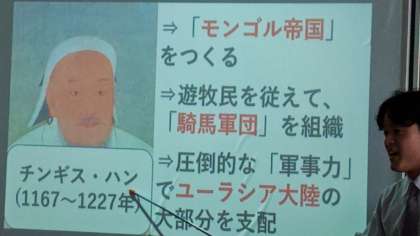 ⇒「モンゴル帝国」
をつくる
⇒遊牧民を従えて、
「騎馬軍団」を組織
⇒圧倒的な「軍事力」
でユーラシア大陸の
大部分を支配
チンギス・ハン
(1167～1227年)